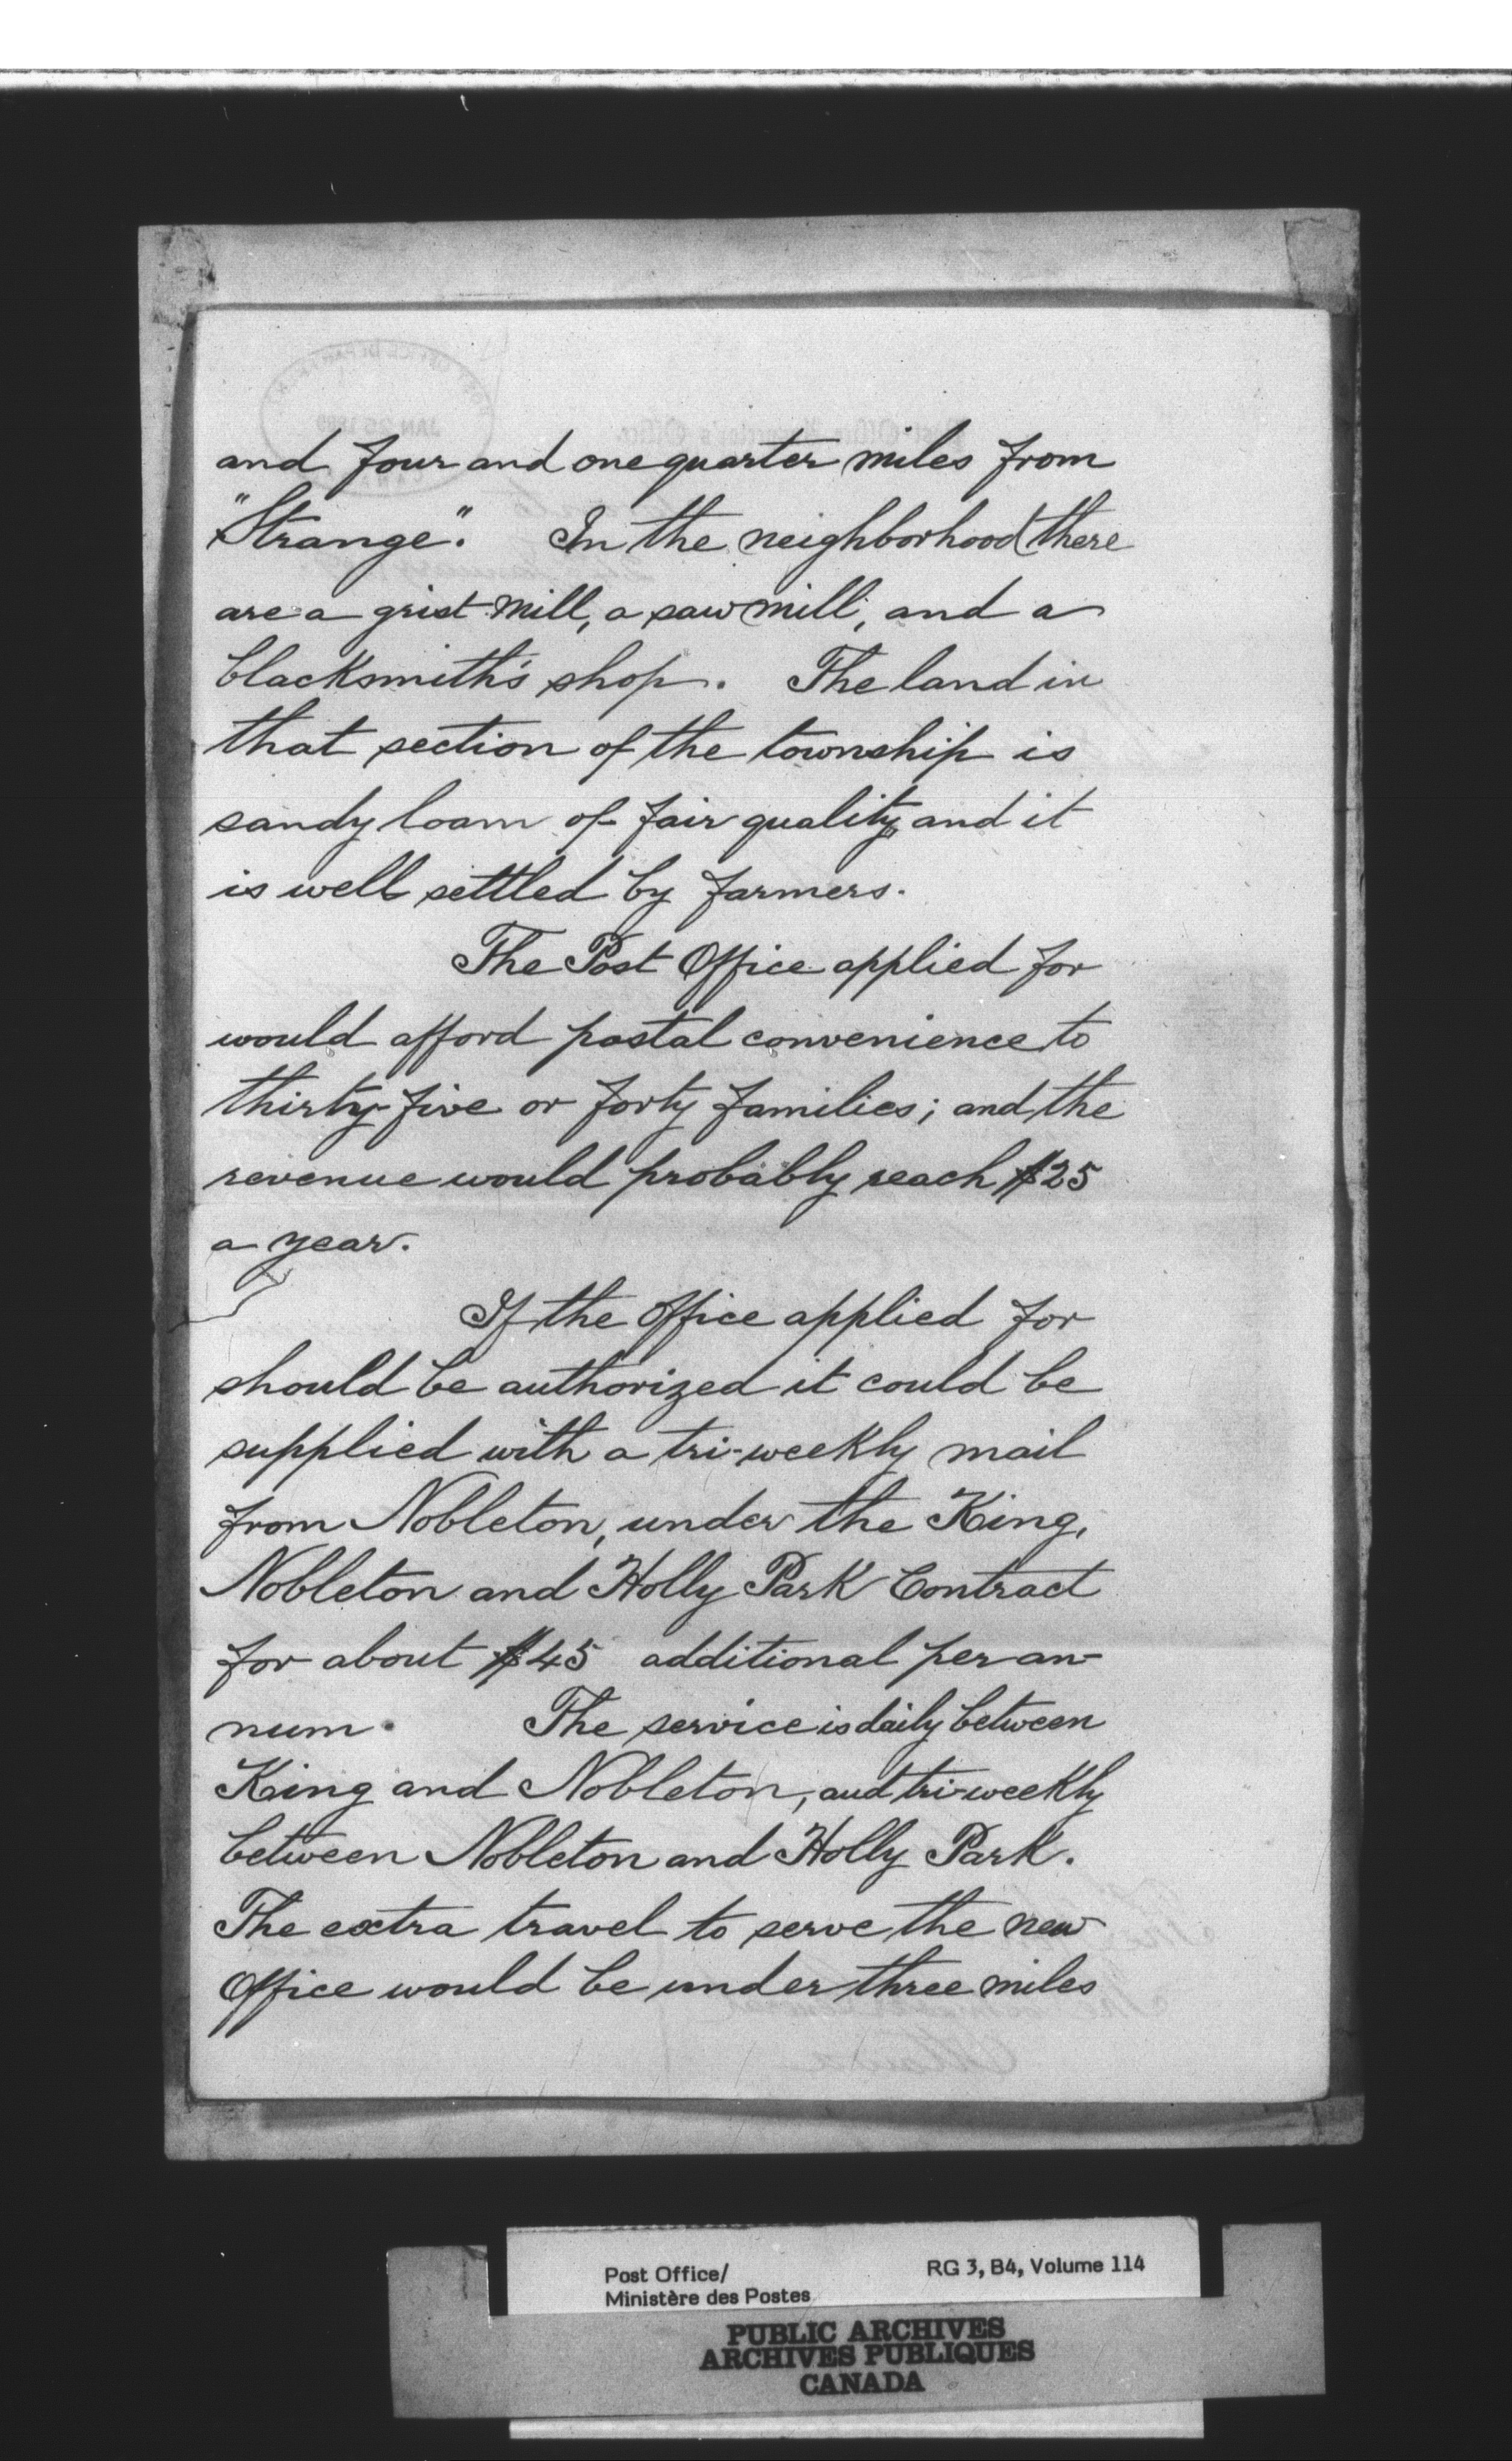 and four and one quarter miles from
"Strange". In the neighborhood there
are a grist mill, a saw mill, and a
blacksmith's shop. The land in
that section of the township is
sandy loam of fair quality, and it
is well settled by farmers.
The Post Office applied for
would afford postal convenience to
thirty-five or forty families; and the
revenue would probably reach $25
a year.
If the Office applied for
should be authorized it could be
supplied with a tri-weekly mail
from Nobleton, under the King,
Nobleton and Holly Park Contract
for about $45 additional per an-
num. The service is daily between
King and Nobleton, and tri-weekly
between Nobleton and Holly Park.
The extra travel to serve the new
Office would be under three miles
Post Office/
Ministère des Postes
RG 3, B4, Volume 114
PUBLIC ARCHIVES
ARCHIVES PUBLIQUES
CANADA